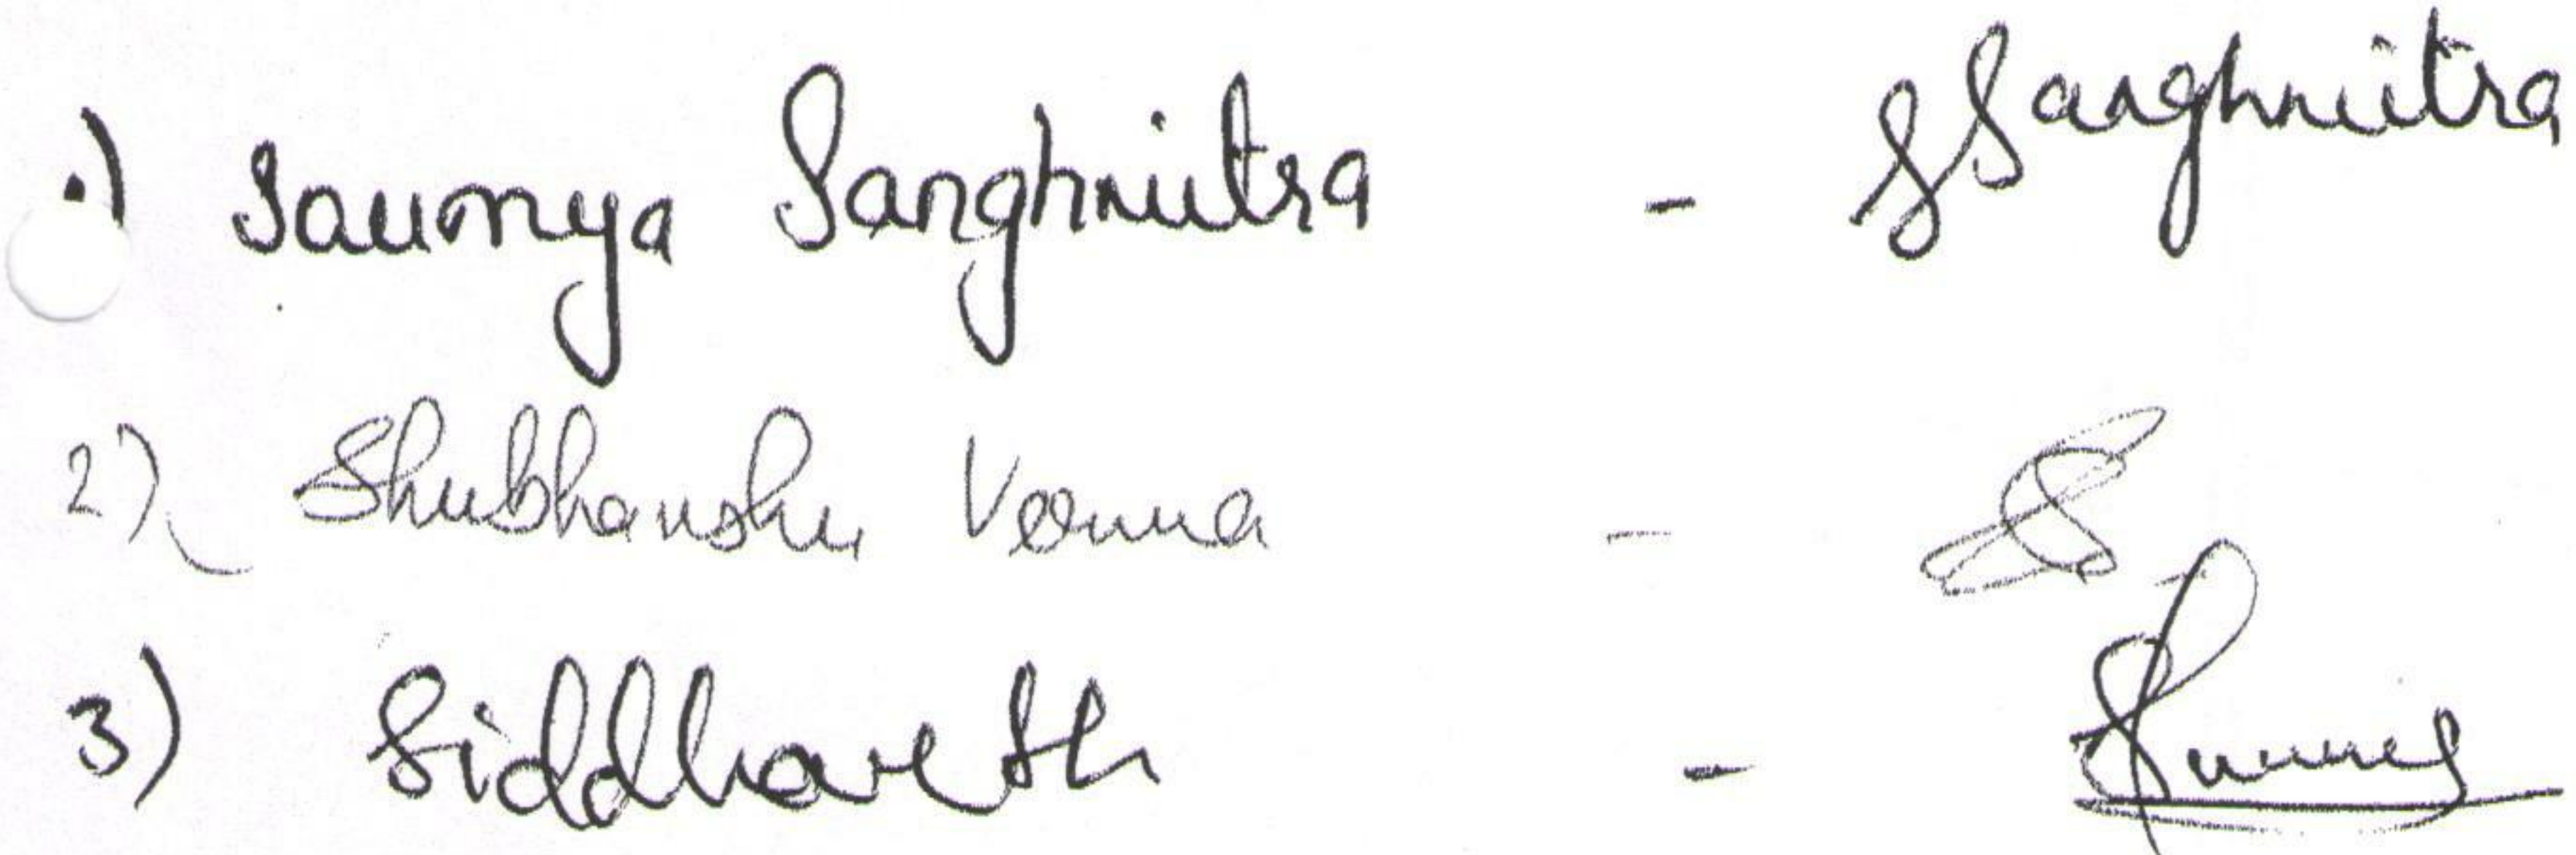 1) Saumya Sanghmitra - SSanghmitra
2) Shubhanshu Verma -
3) Siddharth -